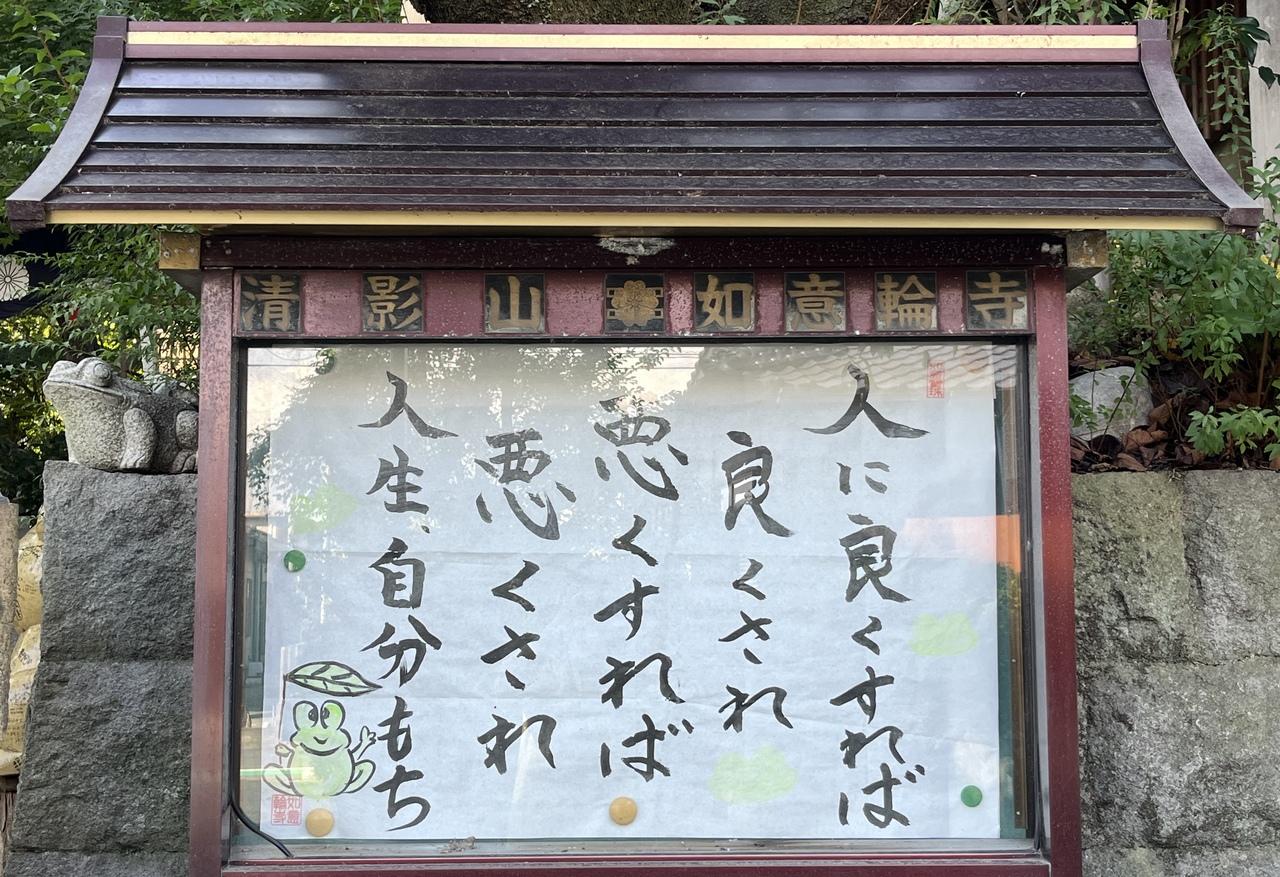 清影山 如意輪寺
人に良くすれば
良くされ
悪くすれば
悪くされ
人生、自分もち
如意輪寺